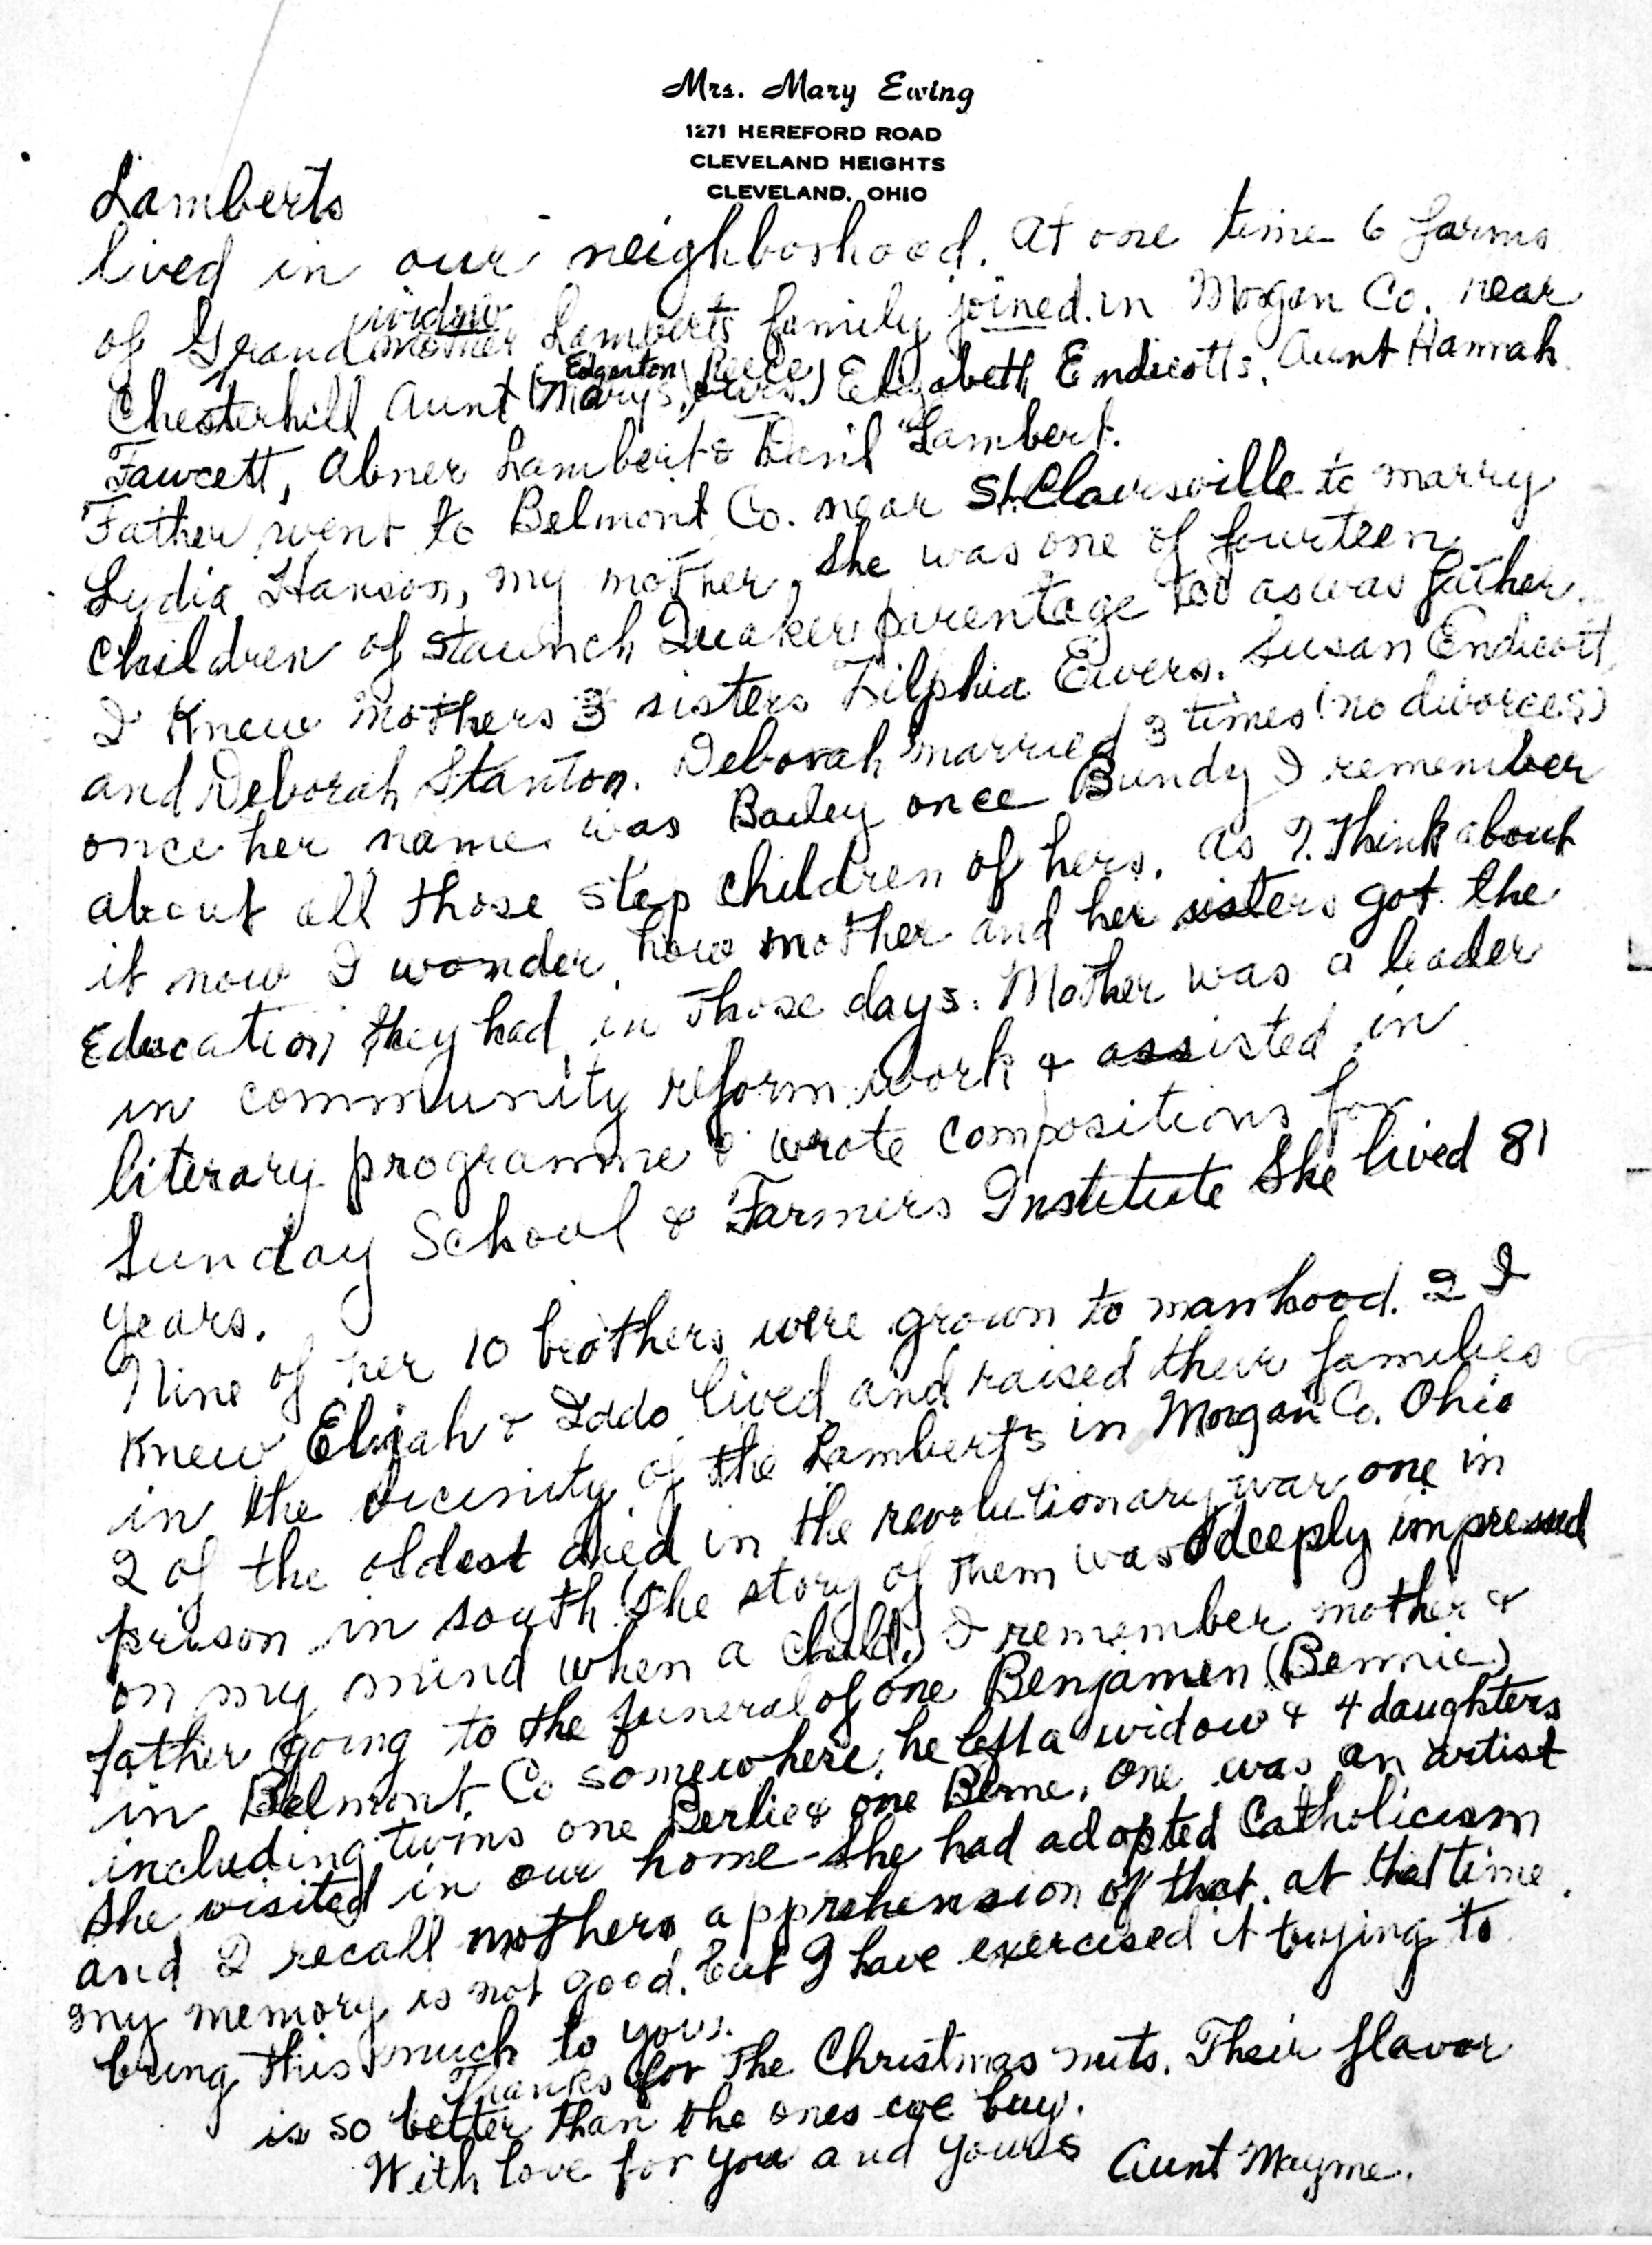 Mrs. Mary Ewing
1271 HEREFORD ROAD
CLEVELAND HEIGHTS
CLEVELAND, OHIO
Lamberts
lived in our neighborhood. At one time 6 farms
widow
of Grandmother Lamberts family joined in Morgan Co. near
Edgerton Reece
Chesterhill Aunt (Mary's, Mrs.) Elizabeth Endicotts, Aunt Hannah
Fawcett, Abner Lambert & Lambert.
Father went to Belmont Co. near St. Clairsville to marry
Lydia Hanson, my mother, she was one of fourteen
children of staunch Quaker parentage too as was father.
I knew mothers 3 sisters Zilphia Ewers. Susan Endicott
and Deborah Stanton. Deborah married 3 times (no divorces)
once her name was Bailey once Bundy I remember
about all those step children of hers. As I think about
it now I wonder how mother and her sisters got the
Education they had in those days. Mother was a leader
in community reform work & assisted in
literary programme & wrote compositions for
Sunday School & Farmers Institute She lived 81
years.
Nine of her 10 brothers were grown to manhood. 2 I
knew Elijah & Iddo lived and raised their families
in the vicinity of the Lamberts in Morgan Co. Ohio
2 of the oldest died in the revolutionary war one in
prison in south (the story of them was deeply impressed
on my mind when a child.) I remember mother &
father going to the funeral of one Benjamen (Bennie)
in Belmont Co somewhere, he left a widow & 4 daughters
including twins one Berlie & one Berne, one was an artist
she visited in our home - she had adopted Catholicism
and I recall mothers apprehension of that. at that time.
my memory is not good. but I have exercised it trying to
bring this much to you.
Thanks for the Christmas nuts. Their flavor
is so better than the ones we buy.
With love for you and yours Aunt Mayme.